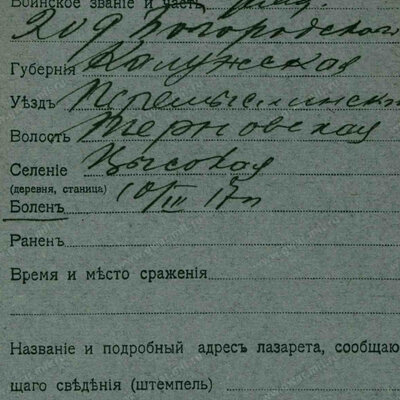 Воинское званіе и часть
209 Богородскаго
Губернія Калужская
Уѣздъ Перемышльск
Волость Терновская
Селеніе Высокая
(деревня, станица)
Боленъ 10/III 17 г
Раненъ
Время и мѣсто сраженія
Названіе и подробный адресъ лазарета, сообщаю
щаго свѣдѣнія (штемпель)